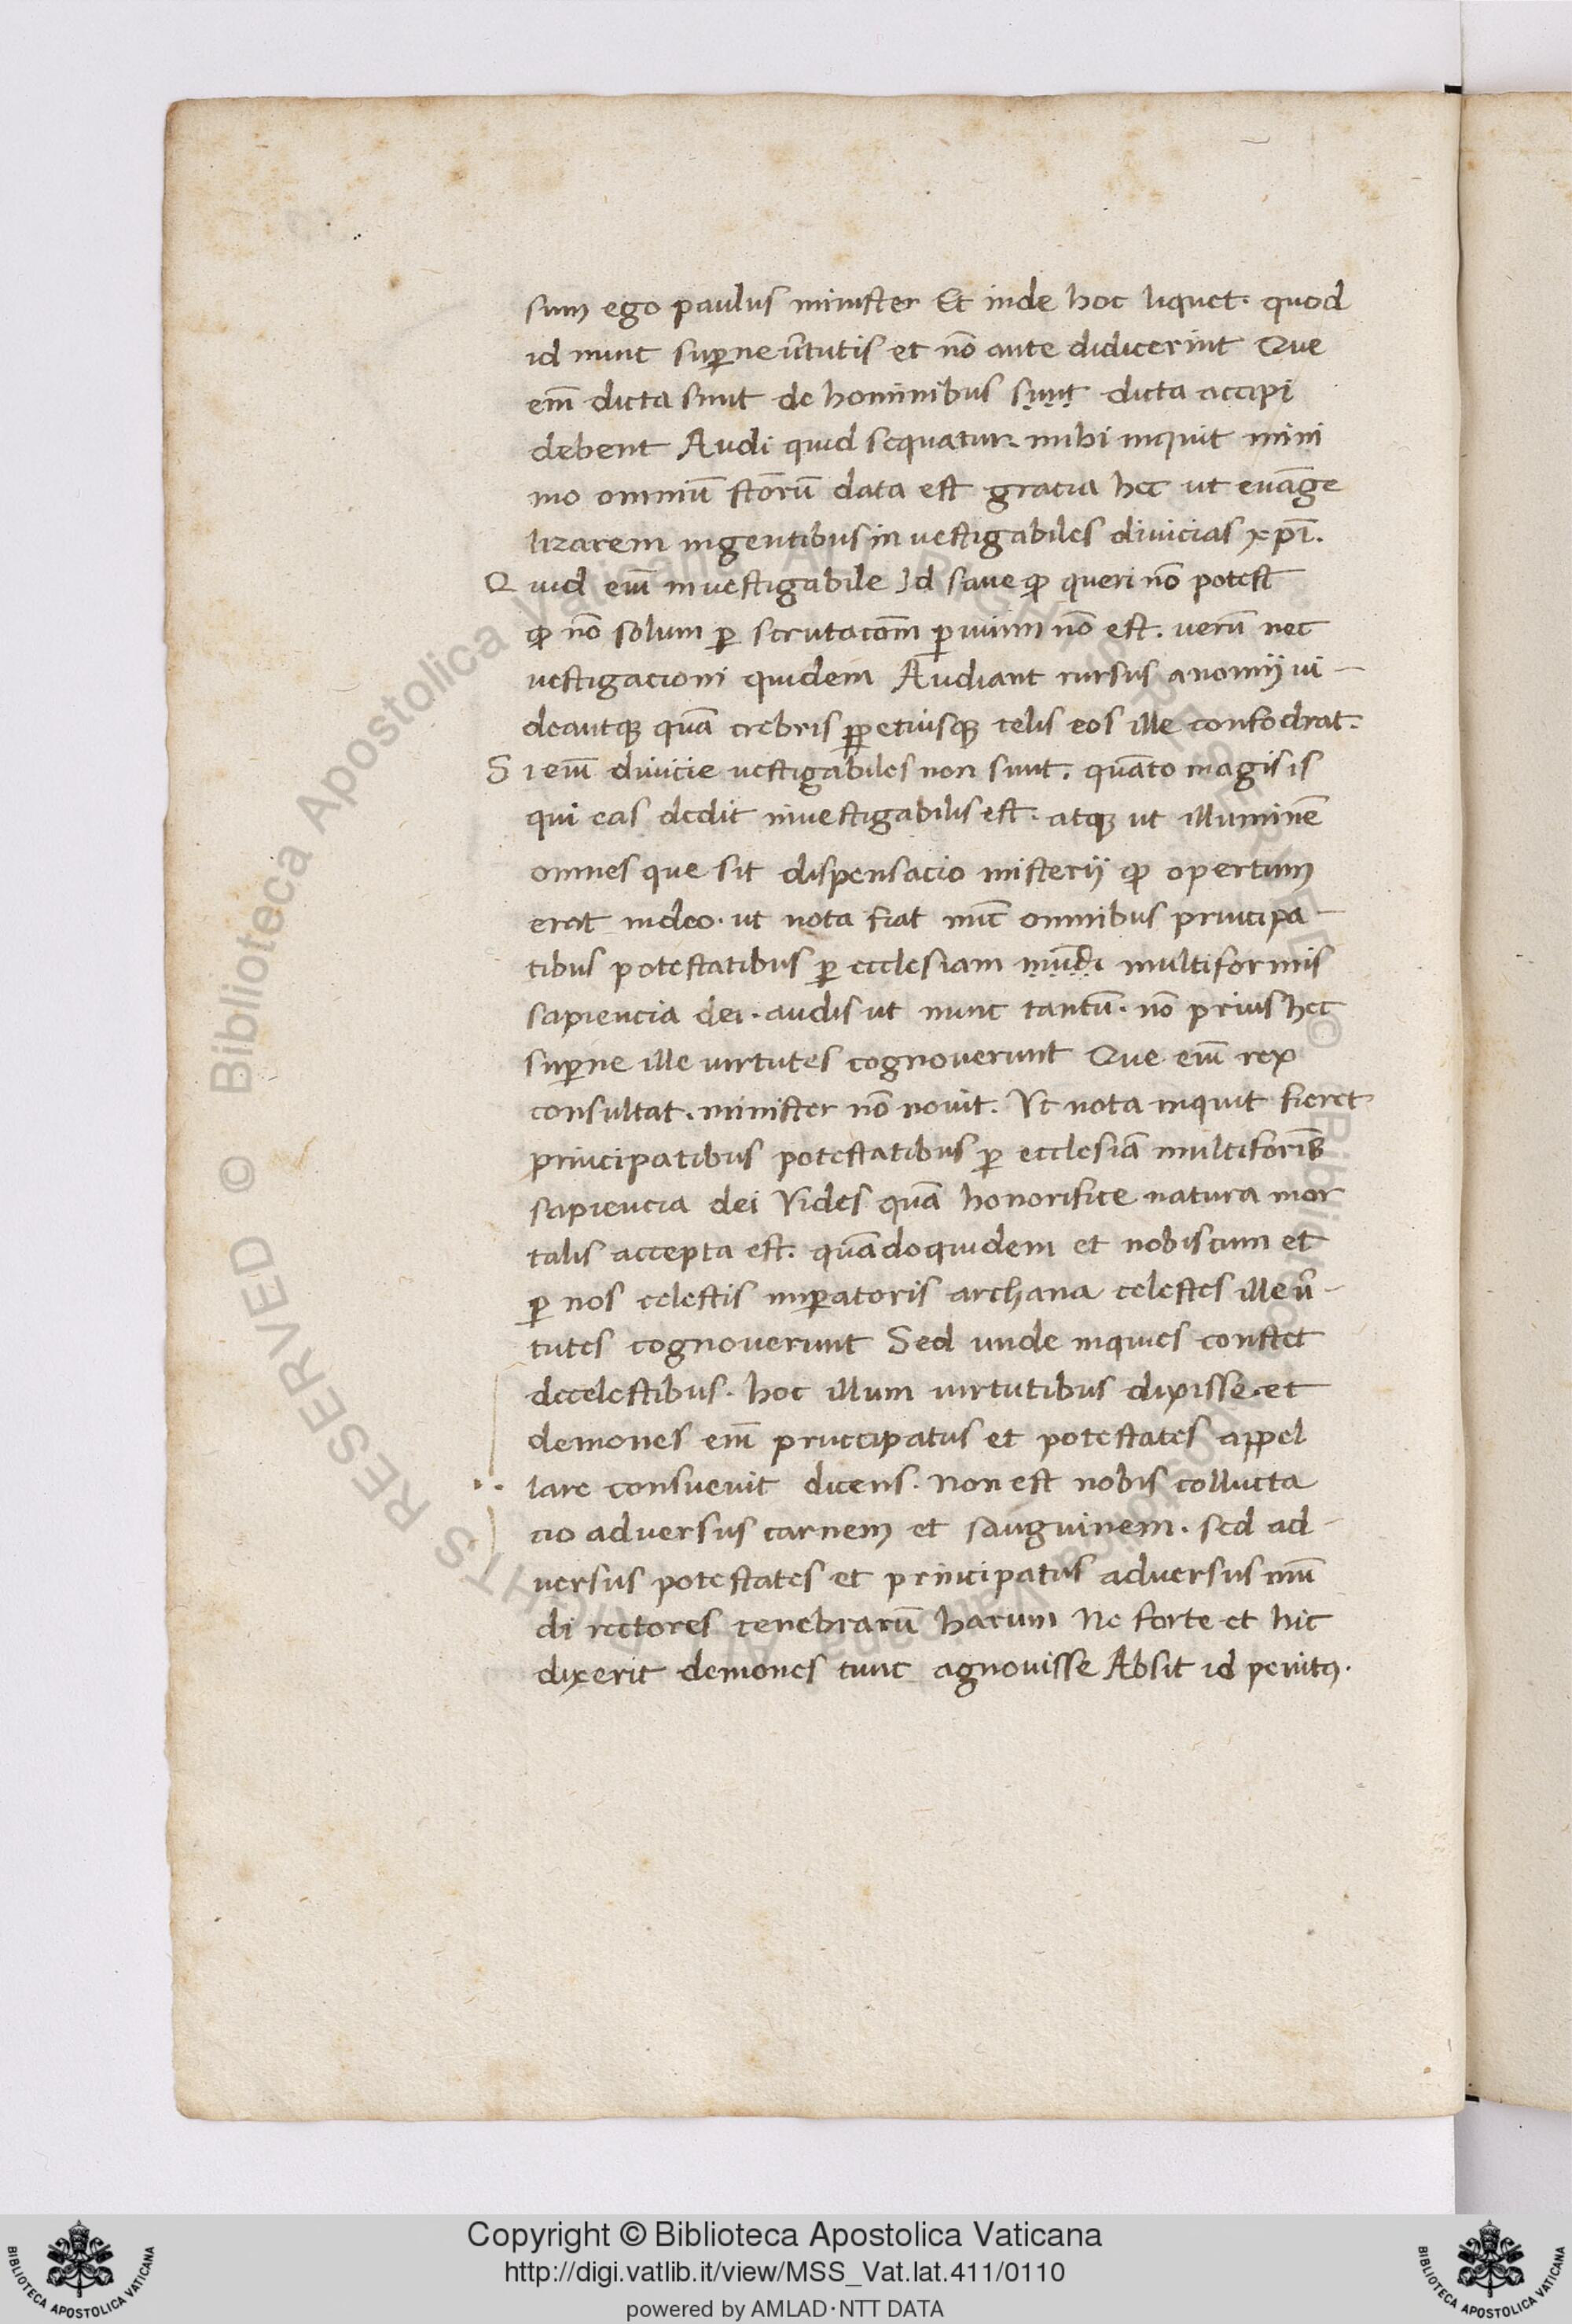 sum ego paulus minister Et inde hoc liquet. quod
id nunc suꝑne ũtutis et nõ ante didicerint Que
em̃ dicta sunt de hominibus sunt dicta accipi
debent Audi quid sequatur. mihi inquit mini
mo omniũ sc̃orũ data est gracia hec ut euãge
lizarem ingentibus in vestigabiles diuicias xp̃i.
Quid em̃ investigabile Id sane qđ queri nõ potest
qđ nõ solum ꝑ scrutacõm ꝑvium nõ est. uerũ nec
vestigacioni quidem Audiant rursus anomij vi-
deantqꝫ quã crebris ꝑpetiusqꝫ telis eos ille confodiat.
Si em̃ diuicie vestigabiles non sunt. quãto magis is
qui eas dedit investigabilis est. atqꝫ ut illuminẽ
omnes que sit dispensacio misterij qđ opertum
erat indeo. ut nota fiat nũc omnibus principa-
tibus potestatibus ꝑ ecclesiam mundi multiformis
sapiencia dei. audis ut nunc tantũ. nõ prius hec
suꝑne ille virtutes cognoverunt Que em̃ rex
consultat. minister nõ novit. Vt nota inquit fieret
principatibus potestatibus ꝑ ecclesiã multiformis
sapiencia dei Vides quã honorifice natura mor
talis accepta est. quãdoquidem et nobiscum et
ꝑ nos celestis imꝑatoris archana celestes ille ũ-
tutes cognoverunt Sed unde inquies constet
decelestibus. hoc illum virtutibus dixisse. et
demones em̃ principatus et potestates appel
lare consuevit dicens. Non est nobis collucta
cio adversus carnem et sanguinem. sed ad-
versus potestates et principatus adversus mũ
di rectores tenebrarũ harum Ne forte et hic
dixerit demones tunc agnovisse Absit id penitꝰ.
Copyright © Biblioteca Apostolica Vaticana
http://digi.vatlib.it/view/MSS_Vat.lat.411/0110
powered by AMLAD·NTT DATA